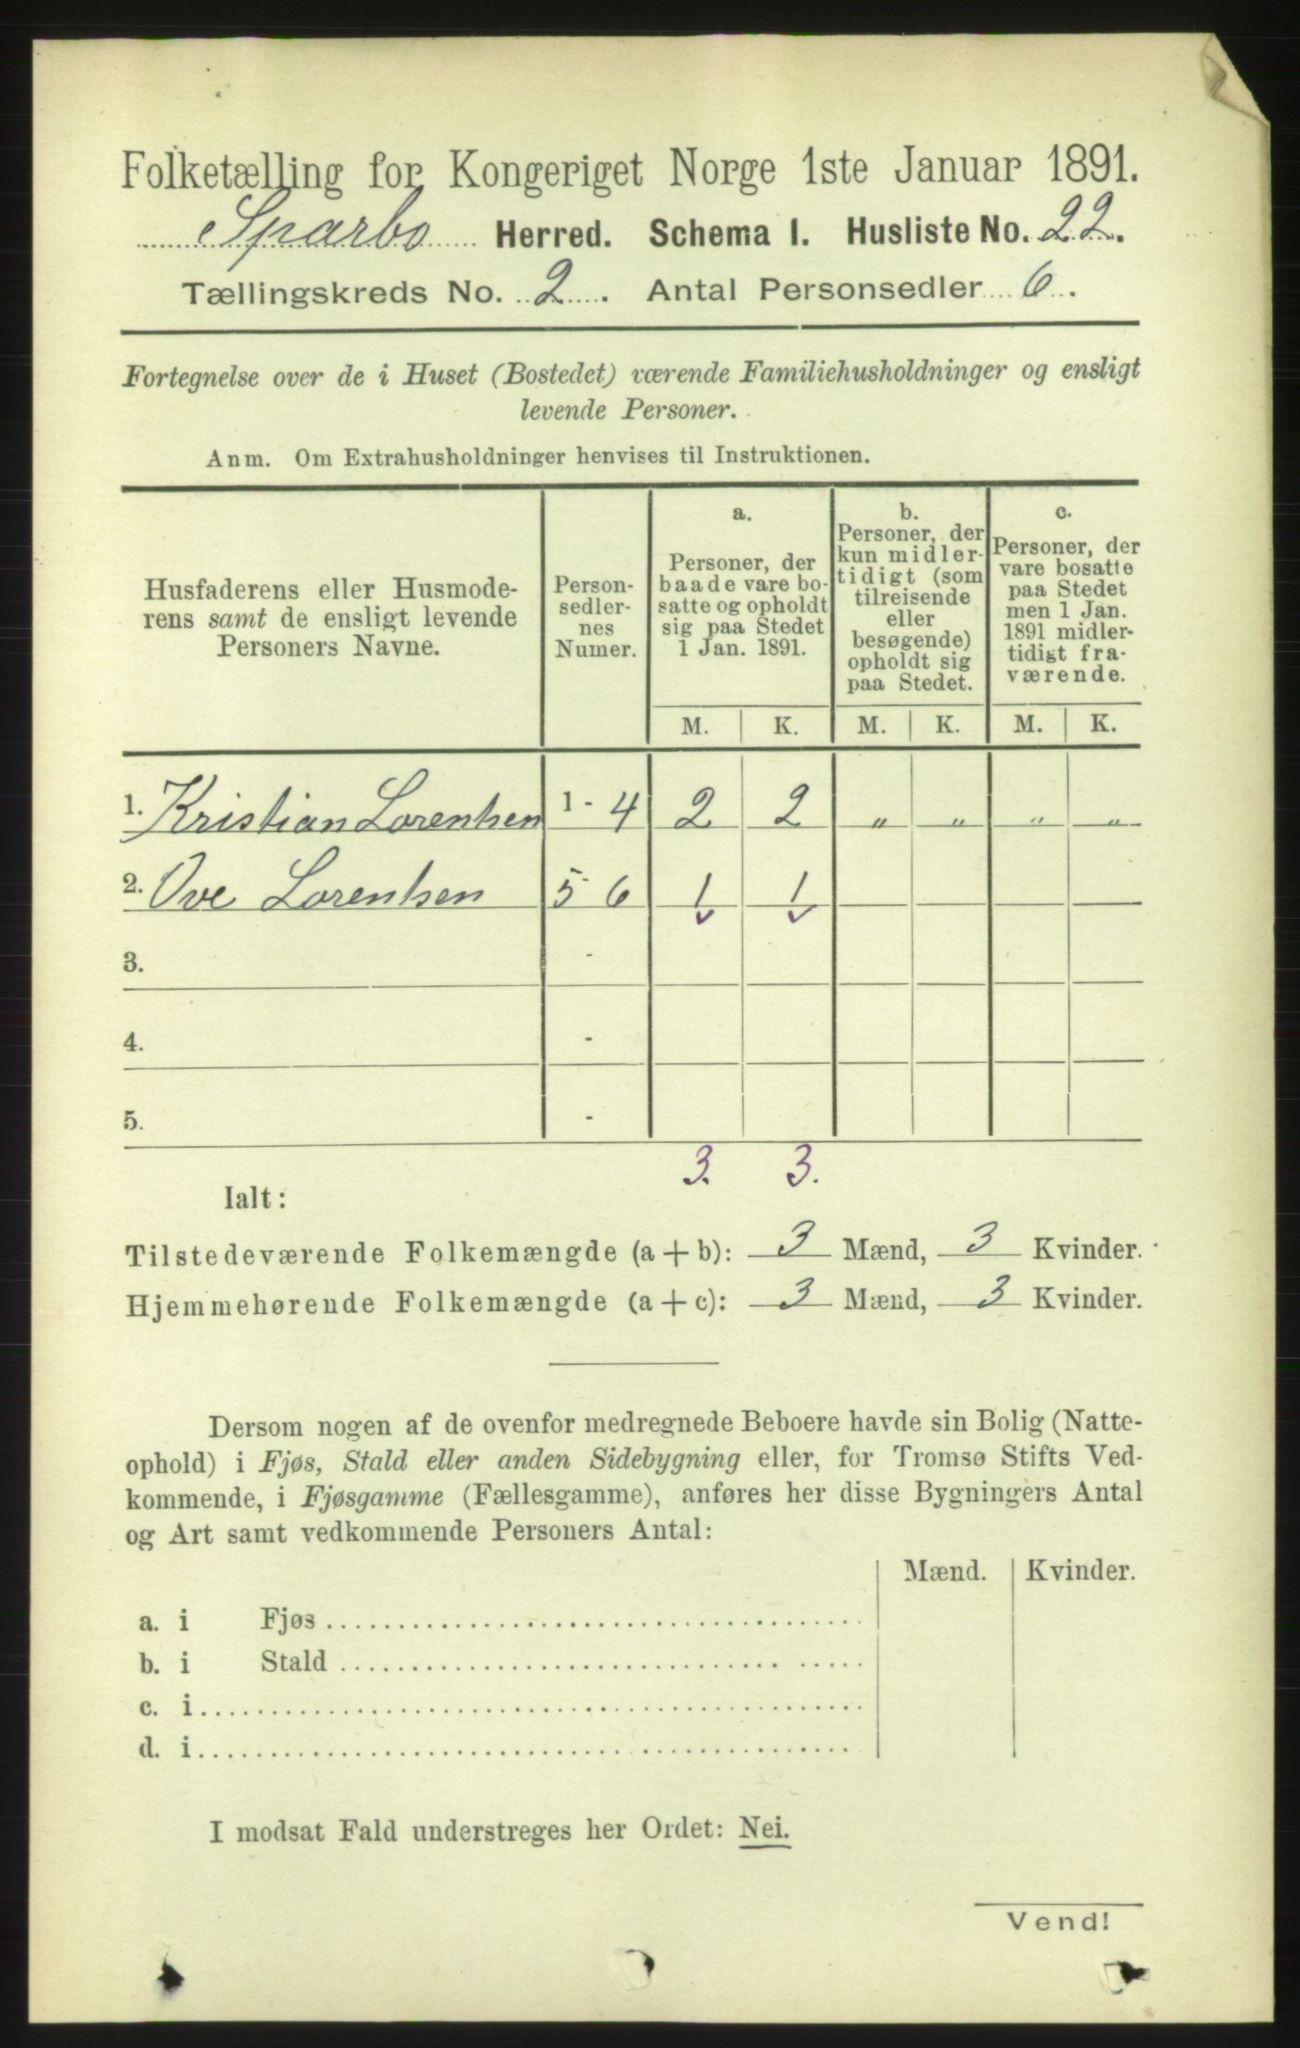 Folketælling for Kongeriget Norge 1ste Januar 1891.
Sparbo Herred. Schema I. Husliste No. 22.
Tællingskreds No. 2. Antal Personsedler 6.
Fortegnelse over de i Huset (Bostedet) værende Familiehusholdninger og ensligt
levende Personer.
Anm. Om Extrahusholdninger henvises til Instruktionen.
Husfaderens eller Husmode-
rens samt de ensligt levende
Personers Navne.
Person-
sedler-
nes
Numer.
a.
Personer, der
baade vare bo-
satte og opholdt
sig paa Stedet
1 Jan. 1891.
b.
Personer, der
kun midler-
tidigt (som
tilreisende
eller
besøgende)
opholdt sig
paa Stedet.
c.
Personer, der
vare bosatte
paa Stedet
men 1 Jan.
1891 midler-
tidigt fra-
værende.
M. K. M. K. M. K.
1. Kristian Lorentsen 1 - 4 2 2 " " " "
2. Ove Lorentsen 5 - 6 1 1
3. -
4. -
5. -
3. 3.
Ialt:
Tilstedeværende Folkemængde (a + b): 3 Mænd, 3 Kvinder.
Hjemmehørende Folkemængde (a + c): 3 Mænd, 3 Kvinder.
Dersom nogen af de ovenfor medregnede Beboere havde sin Bolig (Natte-
ophold) i Fjøs, Stald eller anden Sidebygning eller, for Tromsø Stifts Ved-
kommende, i Fjøsgamme (Fællesgamme), anføres her disse Bygningers Antal
og Art samt vedkommende Personers Antal:
Mænd. Kvinder.
a. i Fjøs
b. i Stald
c. i
d. i
I modsat Fald understreges her Ordet: Nei.
Vend!